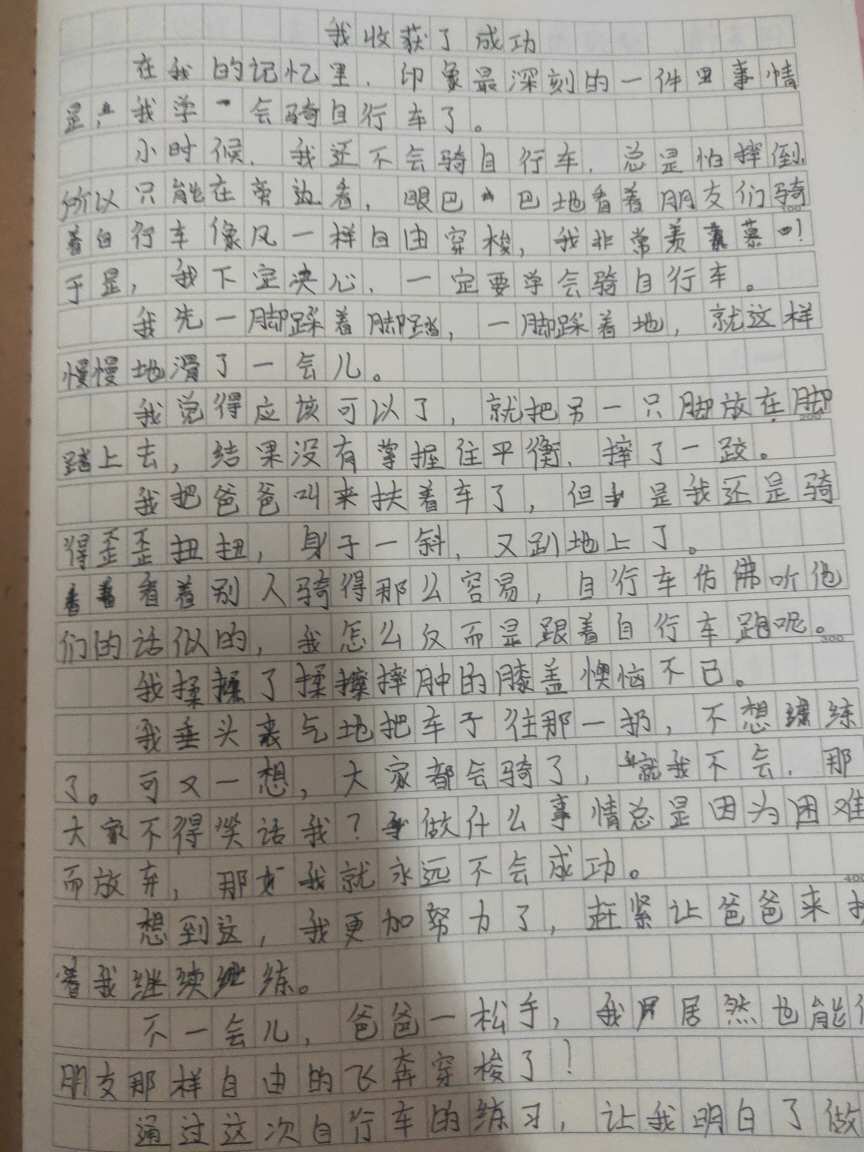 我收获了成功
在我的记忆里，印象最深刻的一件事情
是，我学会骑自行车了。
小时候，我还不会骑自行车，总是怕摔倒，
所以只能在旁边看，眼巴巴地看着朋友们骑
着自行车像风一样自由穿梭，我非常羡慕！
于是，我下定决心，一定要学会骑自行车。
我先一脚踩着脚踏，一脚踩着地，就这样
慢慢地滑了一会儿。
我觉得应该可以了，就把另一只脚放在脚
踏上去，结果没有掌握住平衡，摔了一跤。
我把爸爸叫来扶着车了，但是我还是骑
得歪歪扭扭，身子一斜，又趴地上了。
看着别人骑得那么容易，自行车仿佛听他
们的话似的，我怎么反而是跟着自行车跑呢。
我揉了揉摔肿的膝盖懊恼不已。
我垂头丧气地把车子往那一扔，不想练
了。可又一想，大家都会骑了，就我不会，那
大家不得笑话我？做什么事情总是因为困难
而放弃，那我就永远不会成功。
想到这，我更加努力了，赶紧让爸爸来扶
着我继续练。
不一会儿，爸爸一松手，我居然也能
朋友那样自由的飞奔穿梭了！
通过这次自行车的练习，让我明白了做
200
300
400